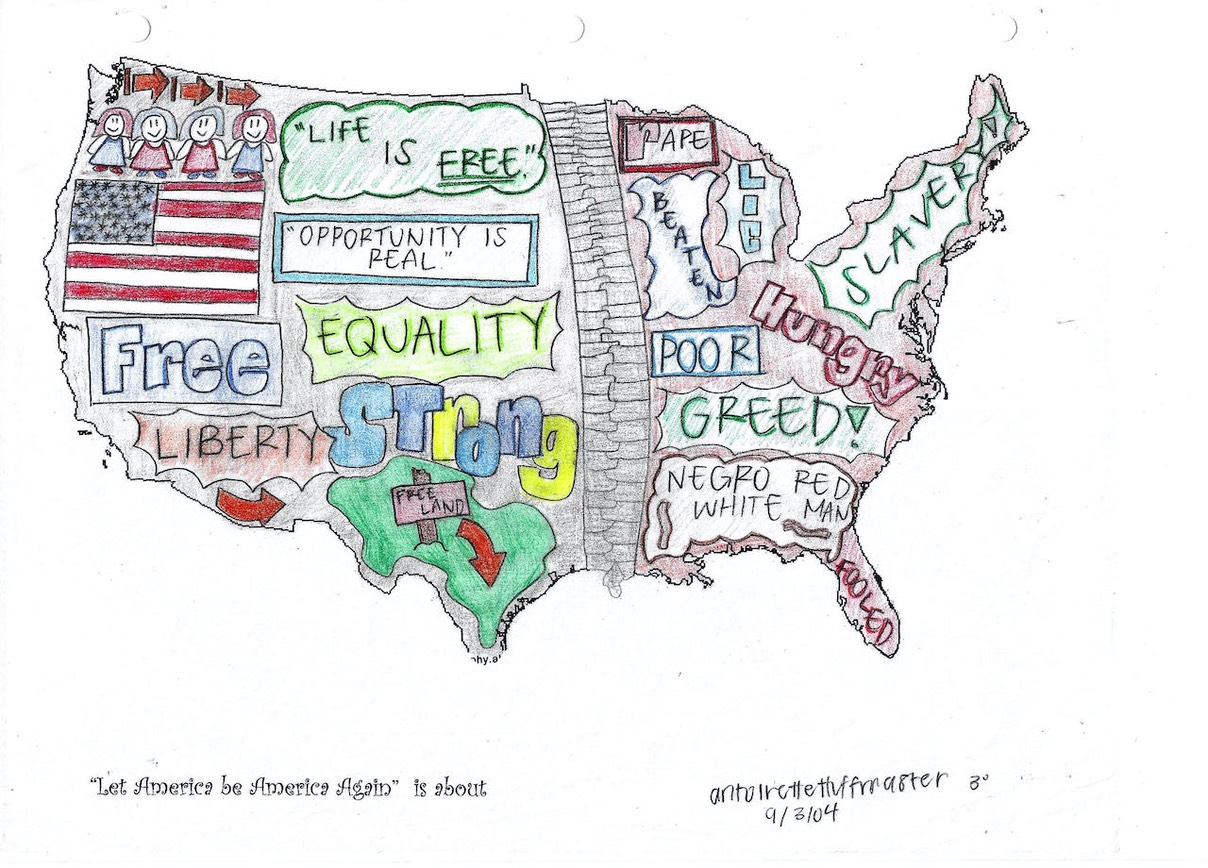 "LIFE
IS FREE."
"OPPORTUNITY IS
REAL."
EQUALITY
Free
STrong
LIBERTY
FREE
LAND
RAPE
BEATEN
LIE
SLAVERY
Hungry
POOR
GREED!
NEGRO RED
WHITE MAN
FOOLED
hy.a
"Let America be America Again" is about
3°
9/3/04